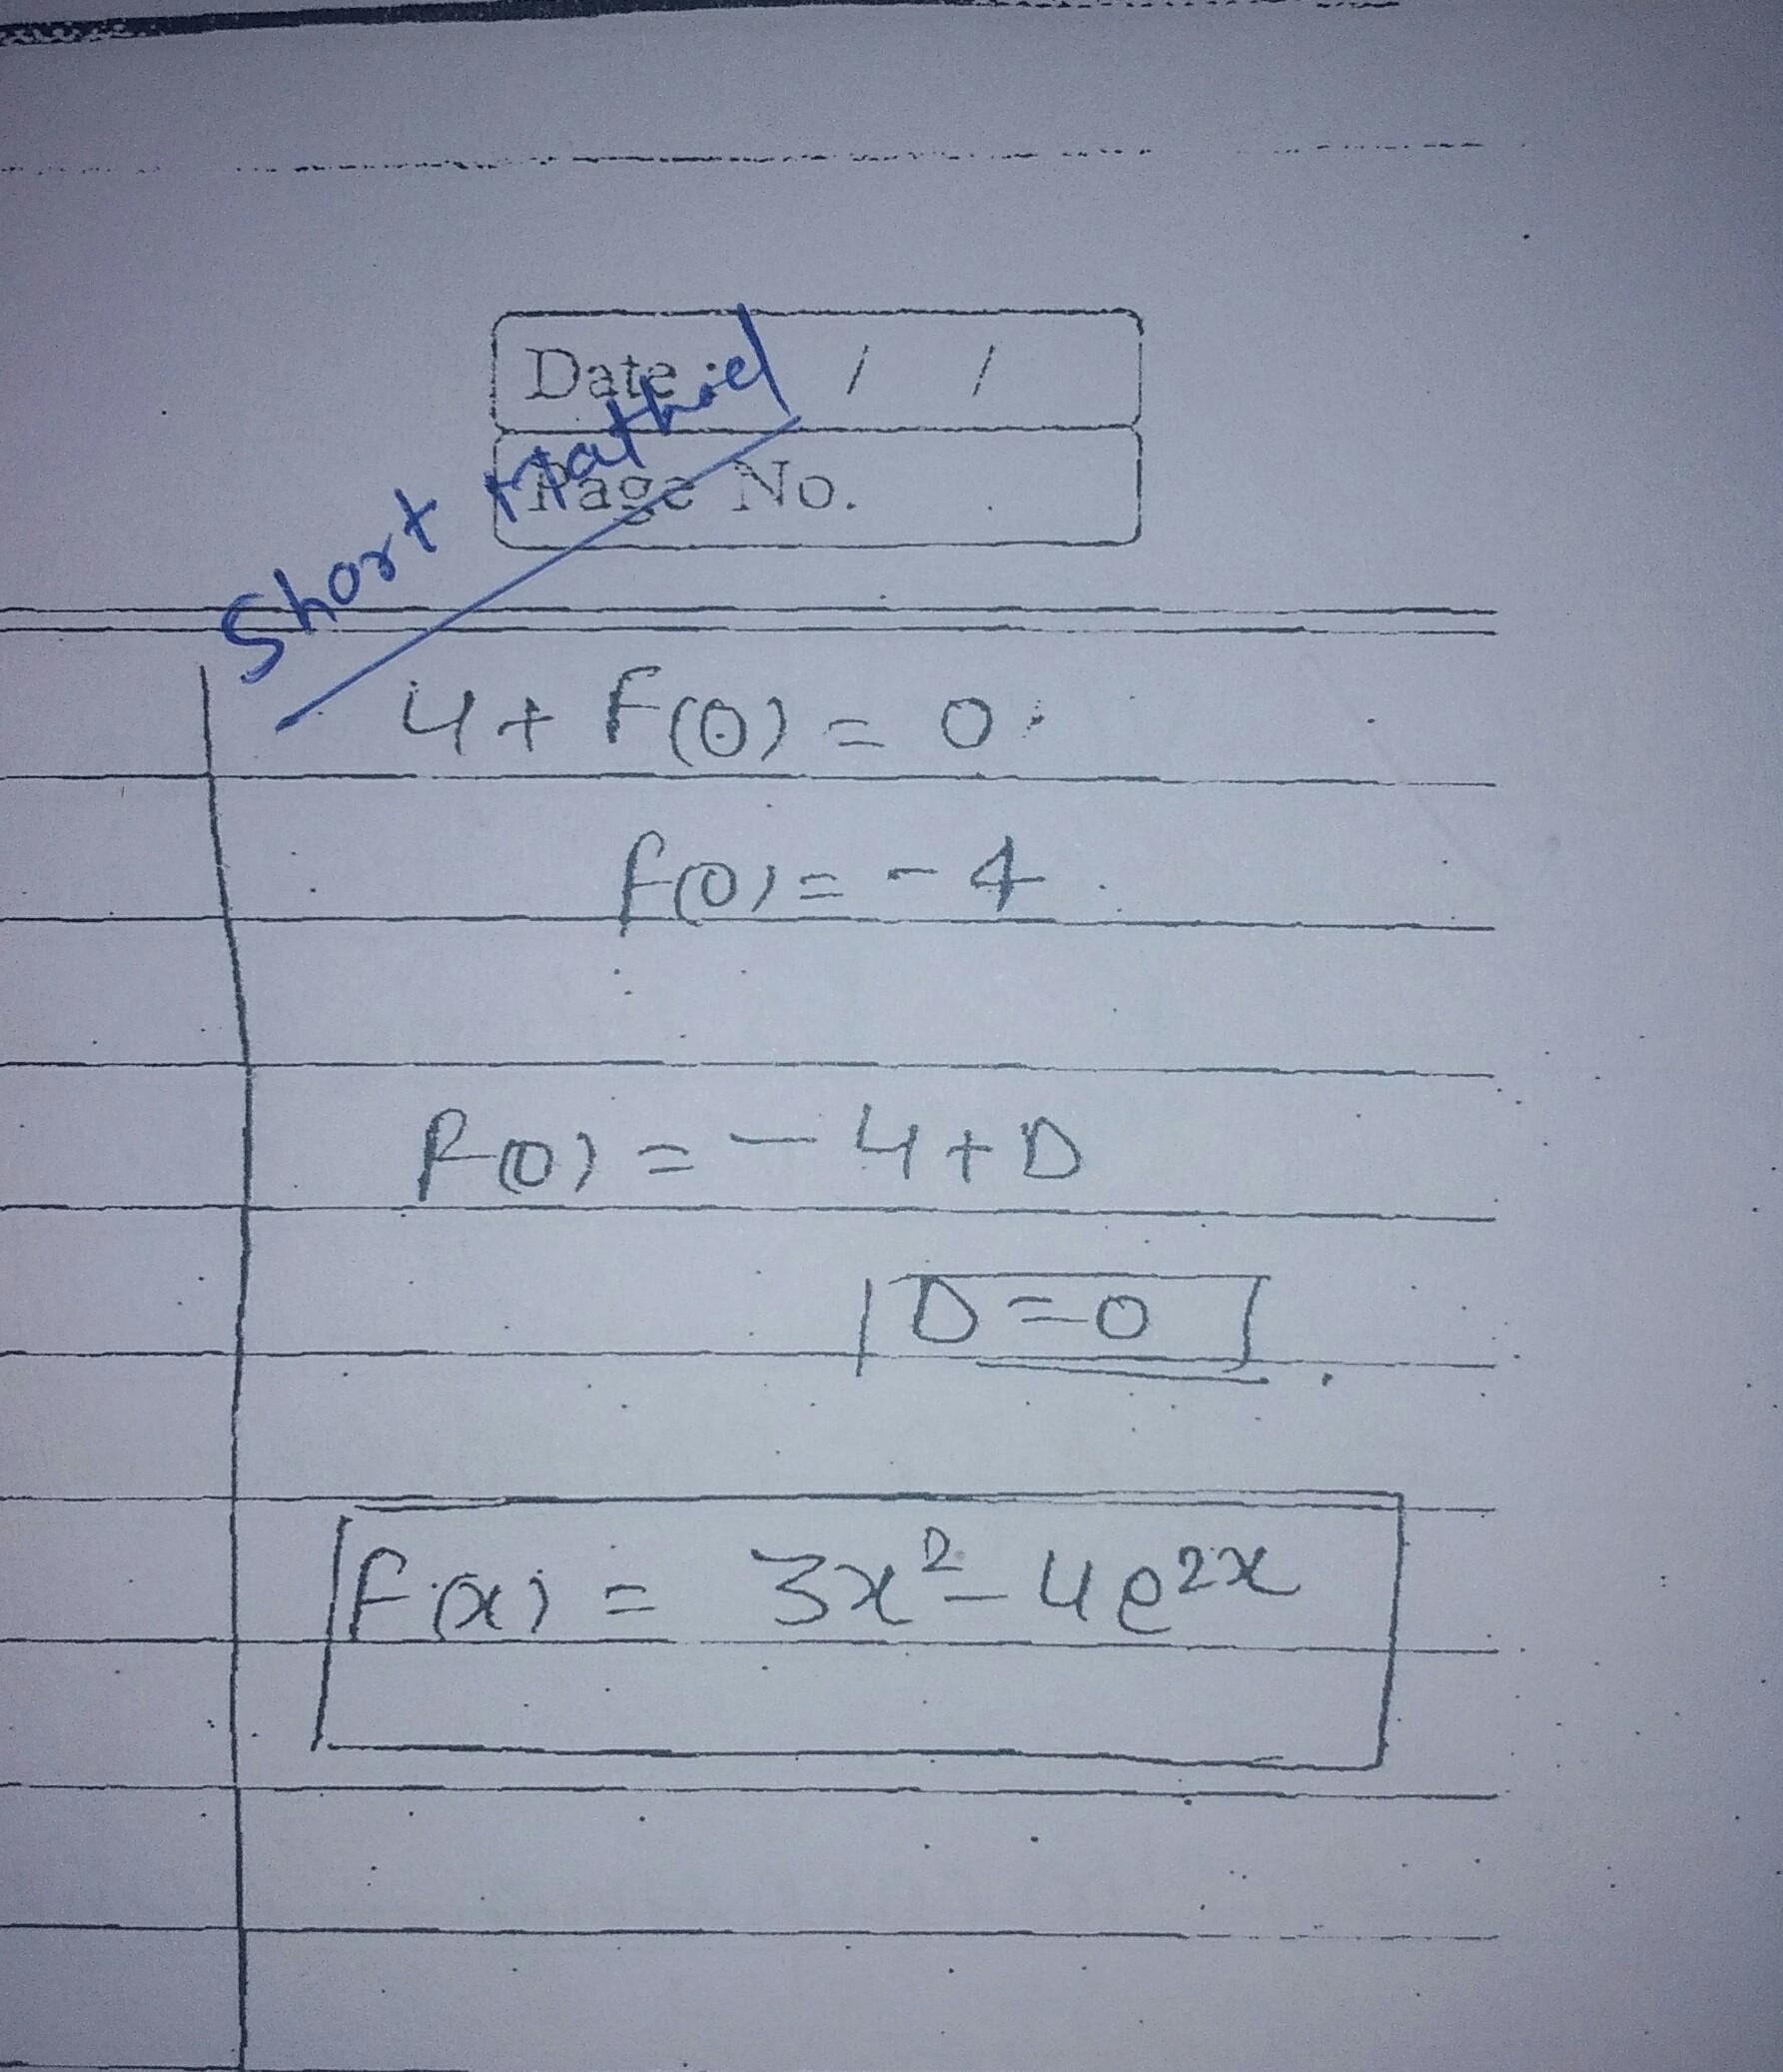 Date : / /
Page No.
Short Mathid
4 + f(0) = 0
f(0) = - 4
f(0) = - 4 + D
D = 0
f(x) = 3x² - 4e²ˣ